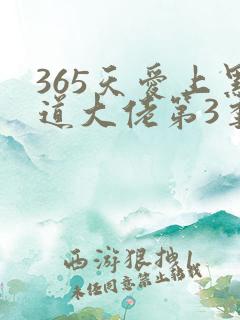 365天爱上黑
道大佬第3季
西游狠拽1
未经同意禁止转载